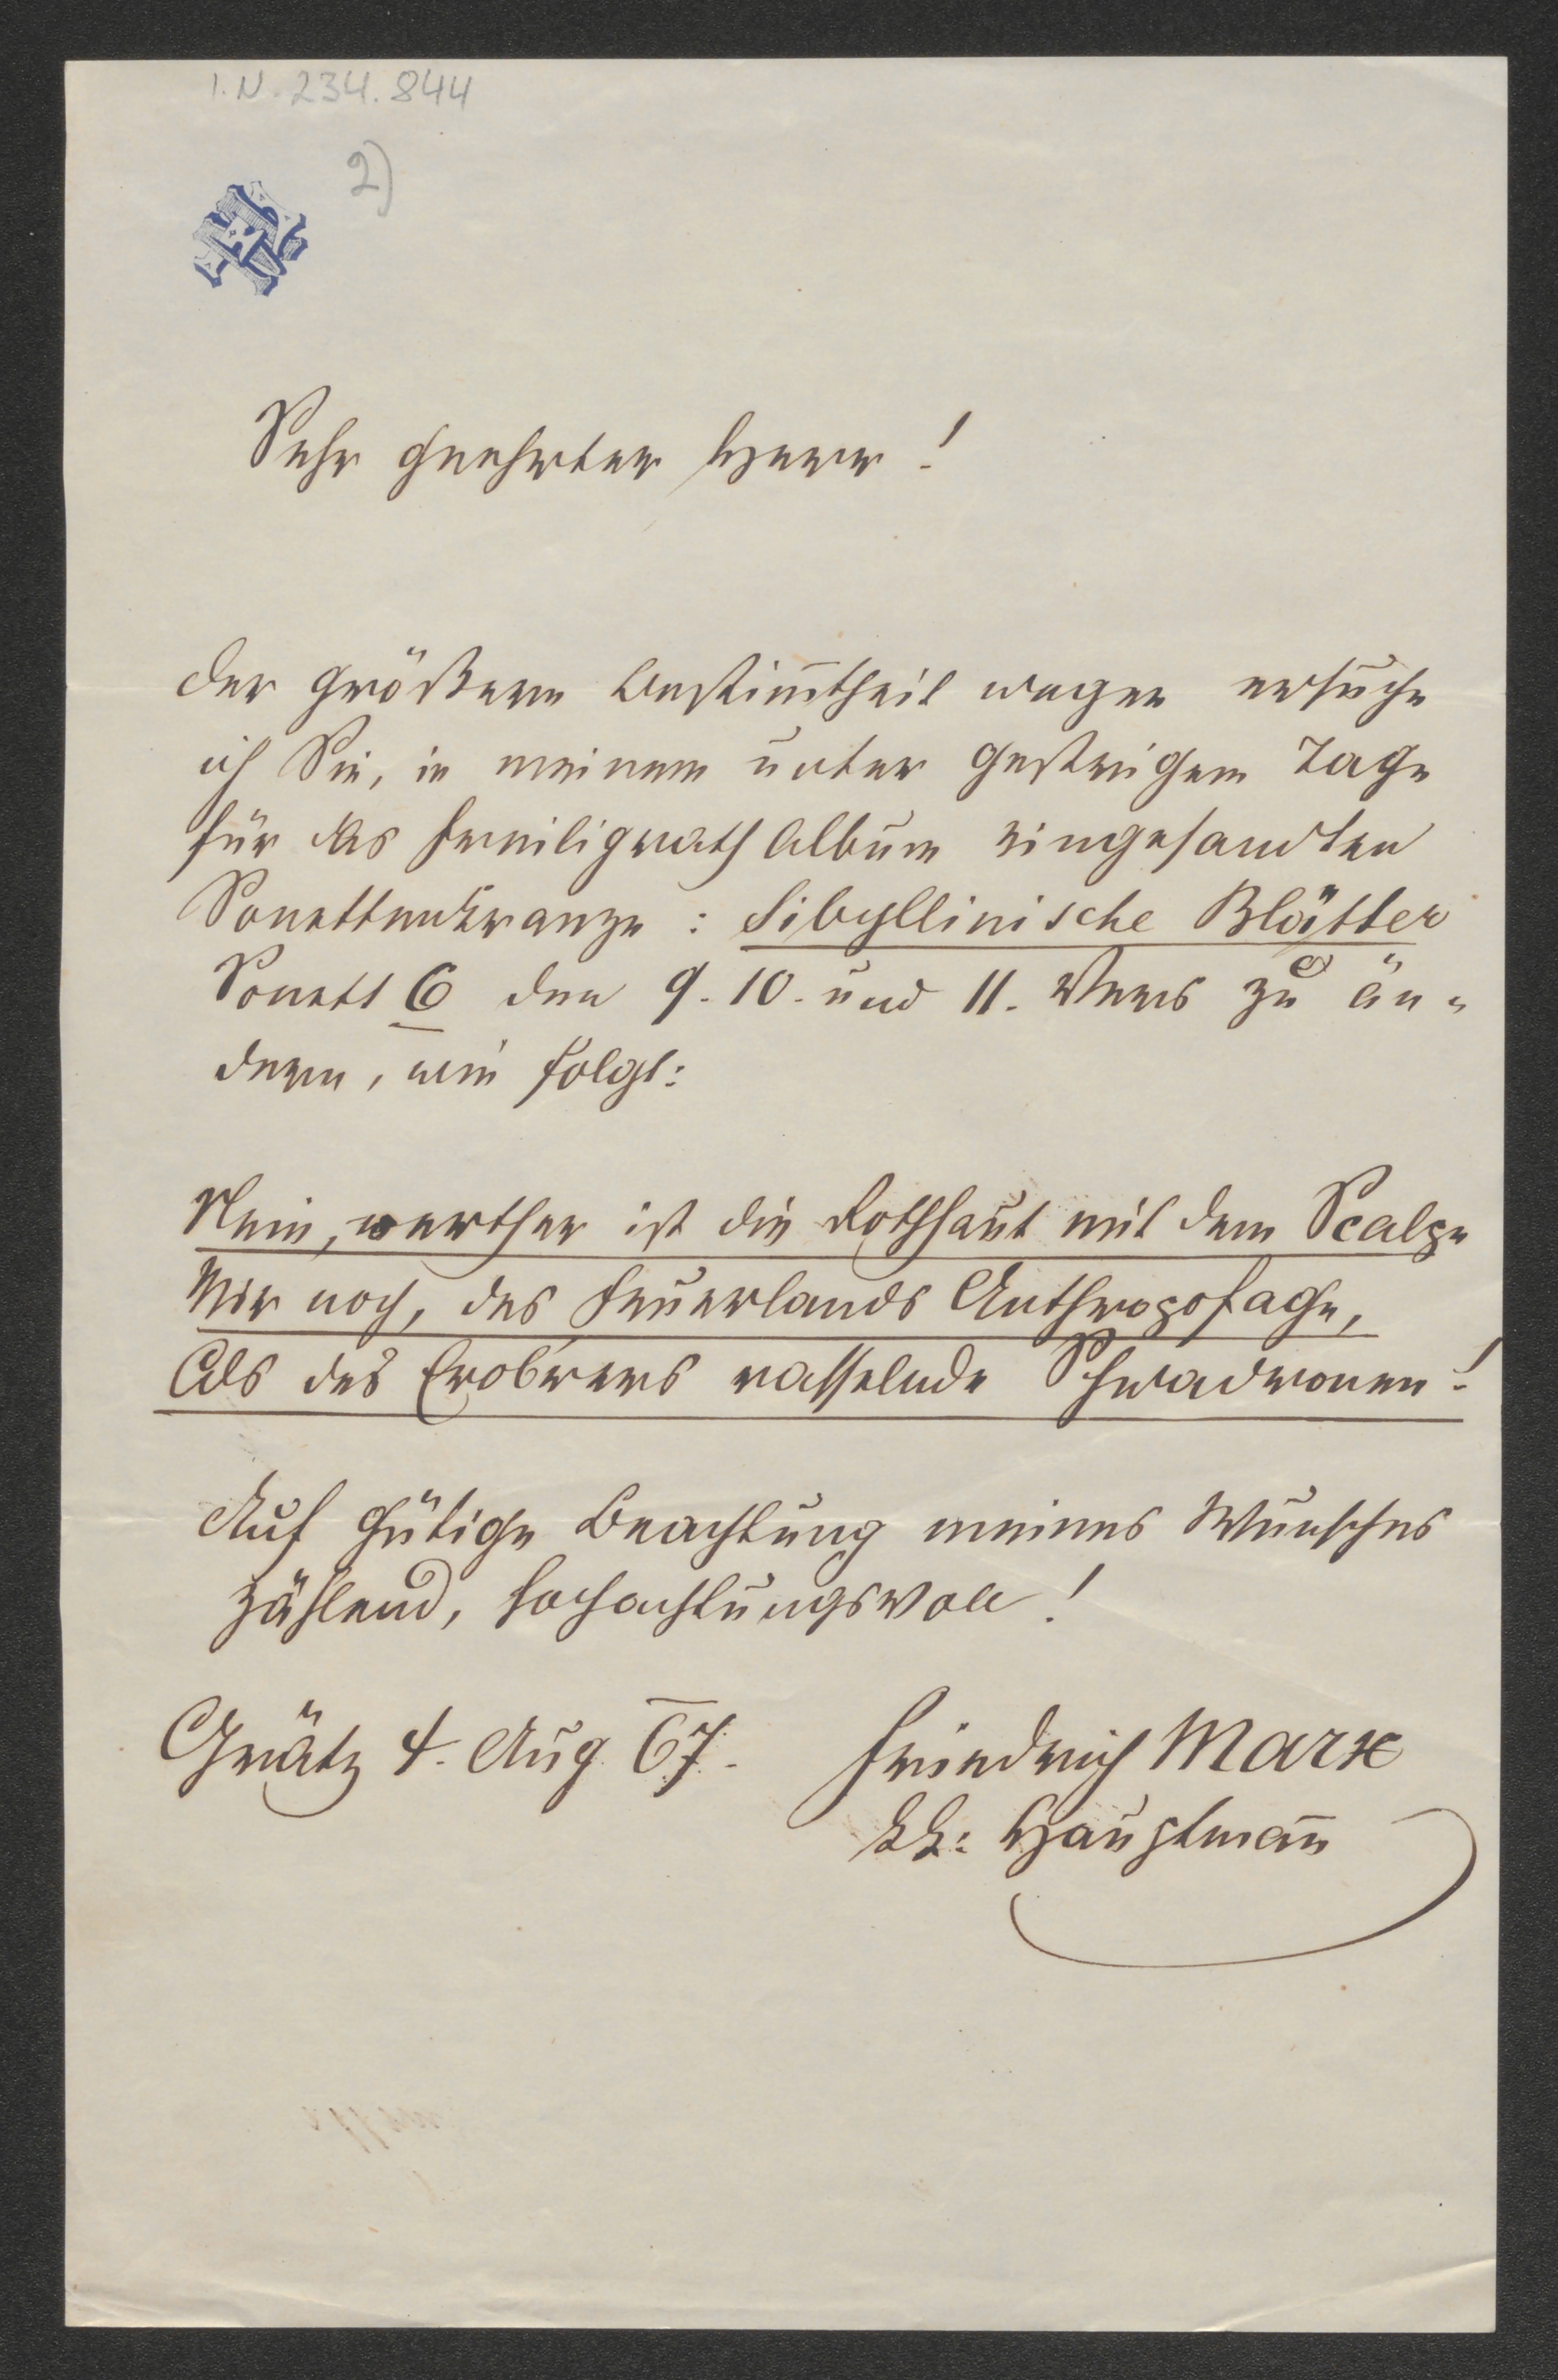 I.N. 234.844
2)
Sehr geehrter Herr!
Der größern Bestim̅theit wegen ersuche
ich Sie, in meinem unter gestrigem Tage
für das Freiligrath Album eingesandten
Sonettenkranze: Sibyllinische Blätter
Sonett 6 den 9. 10. und 11. Vers zu än-
dern, wie folgt:
Nein, werther ist die Rothhaut mit dem Scalpe
Mir noch, des Feuerlands Anthropofage,
Als des Erob'rers rasselnde Schwadronen!
Auf gütige Beachtung meines Wunsches
zählend, hochachtungsvoll!
Grätz 4. Aug 67. Friedrich Marx
kk: Hauptman̅